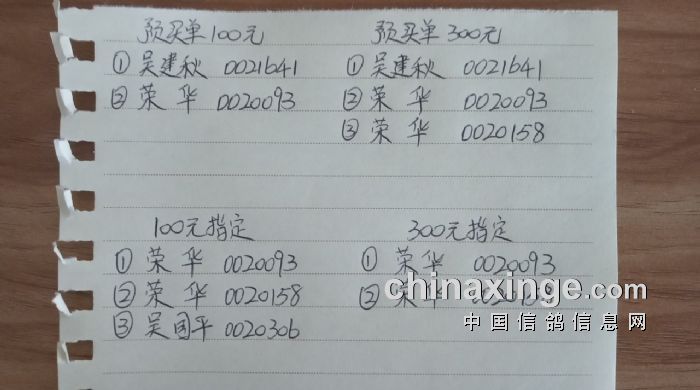 预买单100元
① 吴建秋 0021641
② 荣华 0020093
预买单300元
① 吴建秋 0021641
② 荣华 0020093
③ 荣华 0020158
100元指定
① 荣华 0020093
② 荣华 0020158
③ 吴国平 0020306
300元指定
① 荣华 0020093
② 荣华
chinaxinge.com
中国信鸽信息网